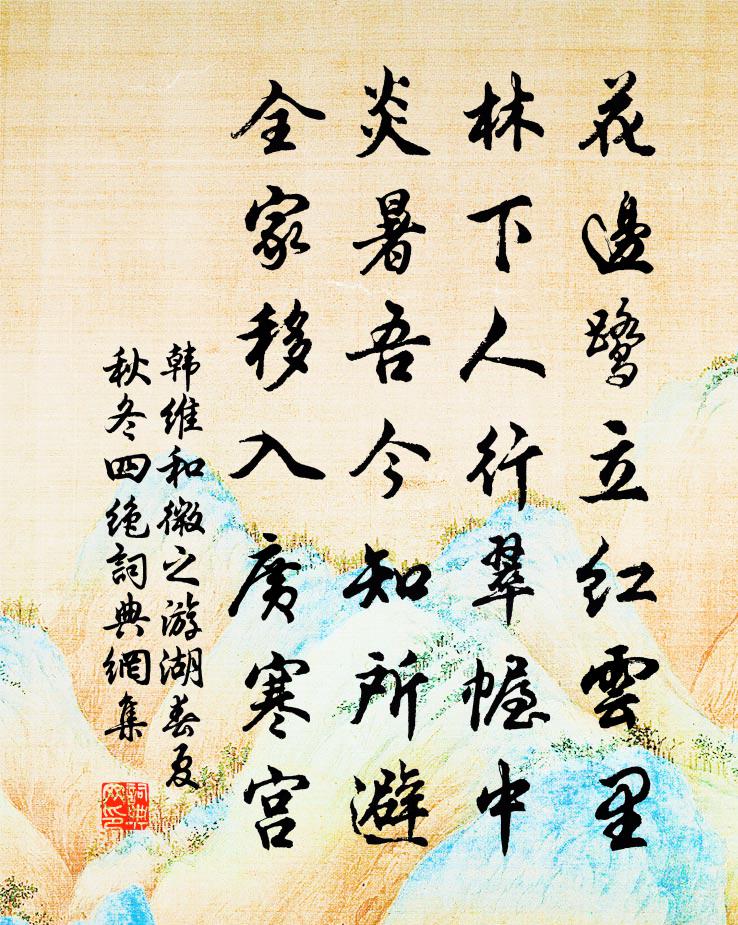 花邊鷺立红雲里
林下人行翠幄中
炎暑吾今知所避
全家移入廣寒宫
韩维和微之游湖春夏
秋冬四绝詞典網集